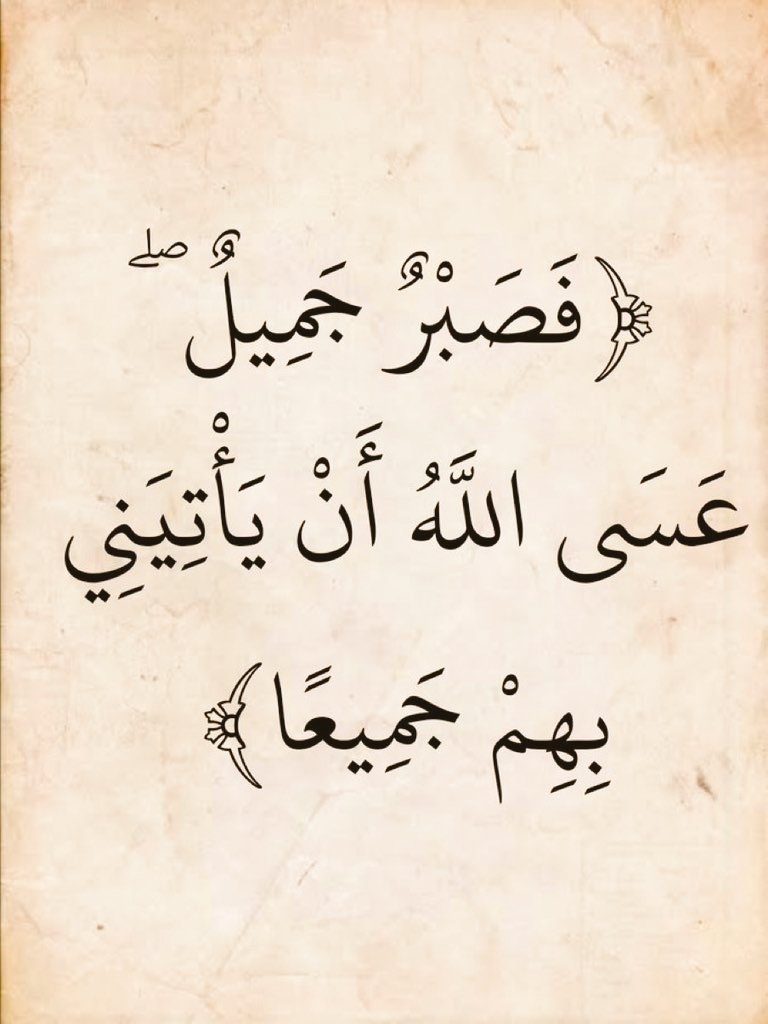 ﴿فَصَبْرٌ جَمِيلٌ ۖ
عَسَى اللَّهُ أَنْ يَأْتِيَنِي
بِهِمْ جَمِيعًا﴾